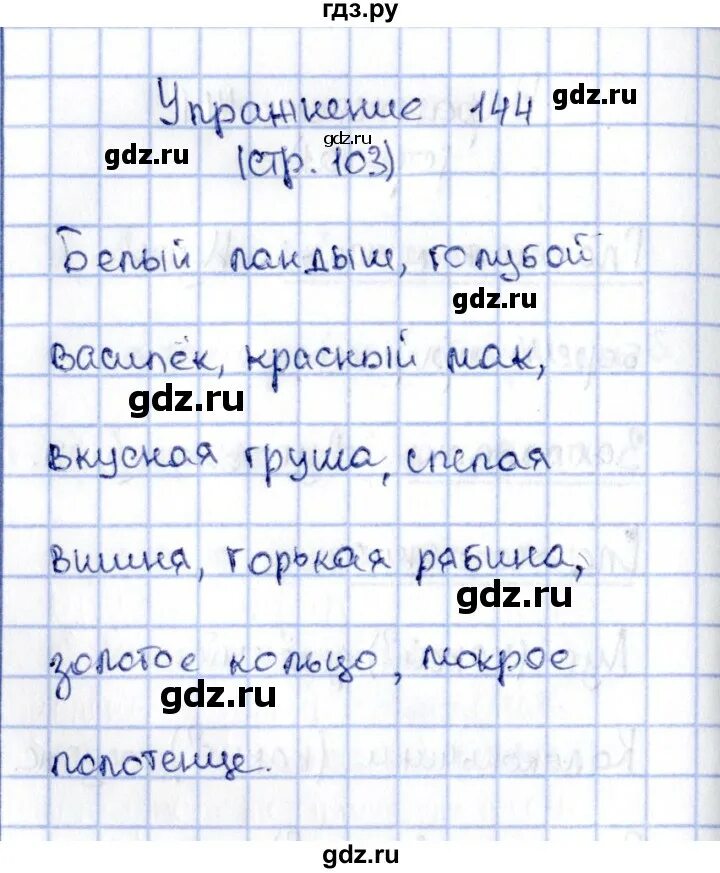 гдз.ру
Упражнение 144
gdz.ru
gdz.ru
gdz.ru
(стр. 103)
Белый ландыш, голубой
gdz.ru
василёк, красный мак,
gdz.ru
вкусная груша, спелая
вишня, горькая рябина,
gdz.ru
золотое кольцо, мокрое
gdz.ru
полотенце.
gdz.ru